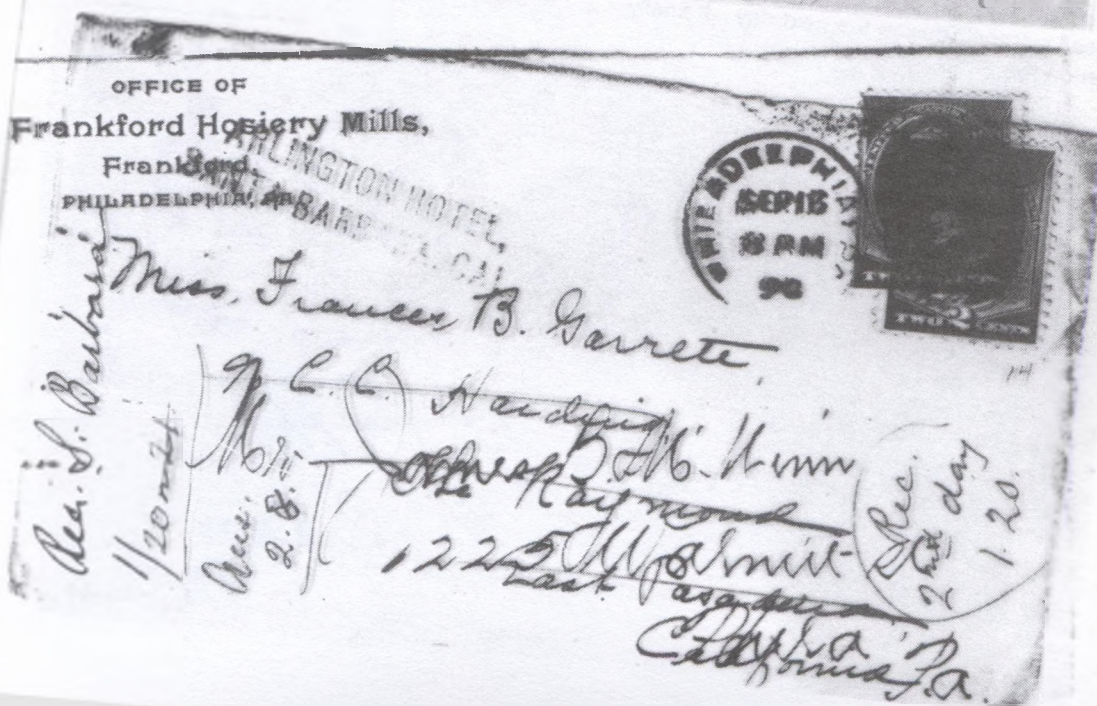 OFFICE OF
Frankford Hosiery Mills,
Frankford,
PHILADELPHIA, PA.
ARLINGTON HOTEL,
SANTA BARBARA, CAL
PHILADELPHIA
SEP 16
8 PM
90
TWO CENTS
2
Miss. Frances B. Garrett,
C. C. Harding
F. W. Winn
The Raymond
1225 Walnut
East Pasadena
Phila.
California Pa.
Rec. S. Barbara
1/20
Ans.
2.8.
Rec.
2nd day
1.20.
14